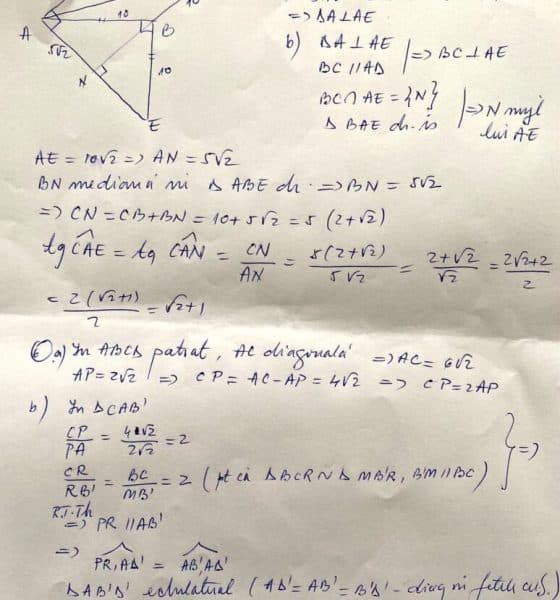 A
10
B
5√2
N
10
E
=> DA⊥AE
b) DA⊥AE
BC // AD
=> BC⊥AE
BC∩AE = {N}
Δ BAE dr. is
=> N mijl
lui AE
AE = 10√2 => AN = 5√2
BN mediană în Δ ABE dr. => BN = 5√2
=> CN = CB+BN = 10+5√2 = 5(2+√2)
tg CAE = tg CAN = CN/AN = 5(2+√2)/5√2 = 2+√2/√2 = 2√2+2/2
= 2(√2+1)/2 = √2+1
6 a) În ABCD pătrat, AC diagonală => AC = 6√2
AP = 2√2 => CP = AC-AP = 4√2 => CP = 2AP
b) În ΔCAB'
CP/PA = 4√2/2√2 = 2
CR/RB' = BC/MB' = 2 (pt că ΔBCR ~ Δ MB'R, B'M // BC)
=>
R.T.Th
=> PR // AB'
=> PR,AD' = AB',AD'
ΔAB'D' echilateral (AD' = AB' = B'D' - diag în fețele cub.)